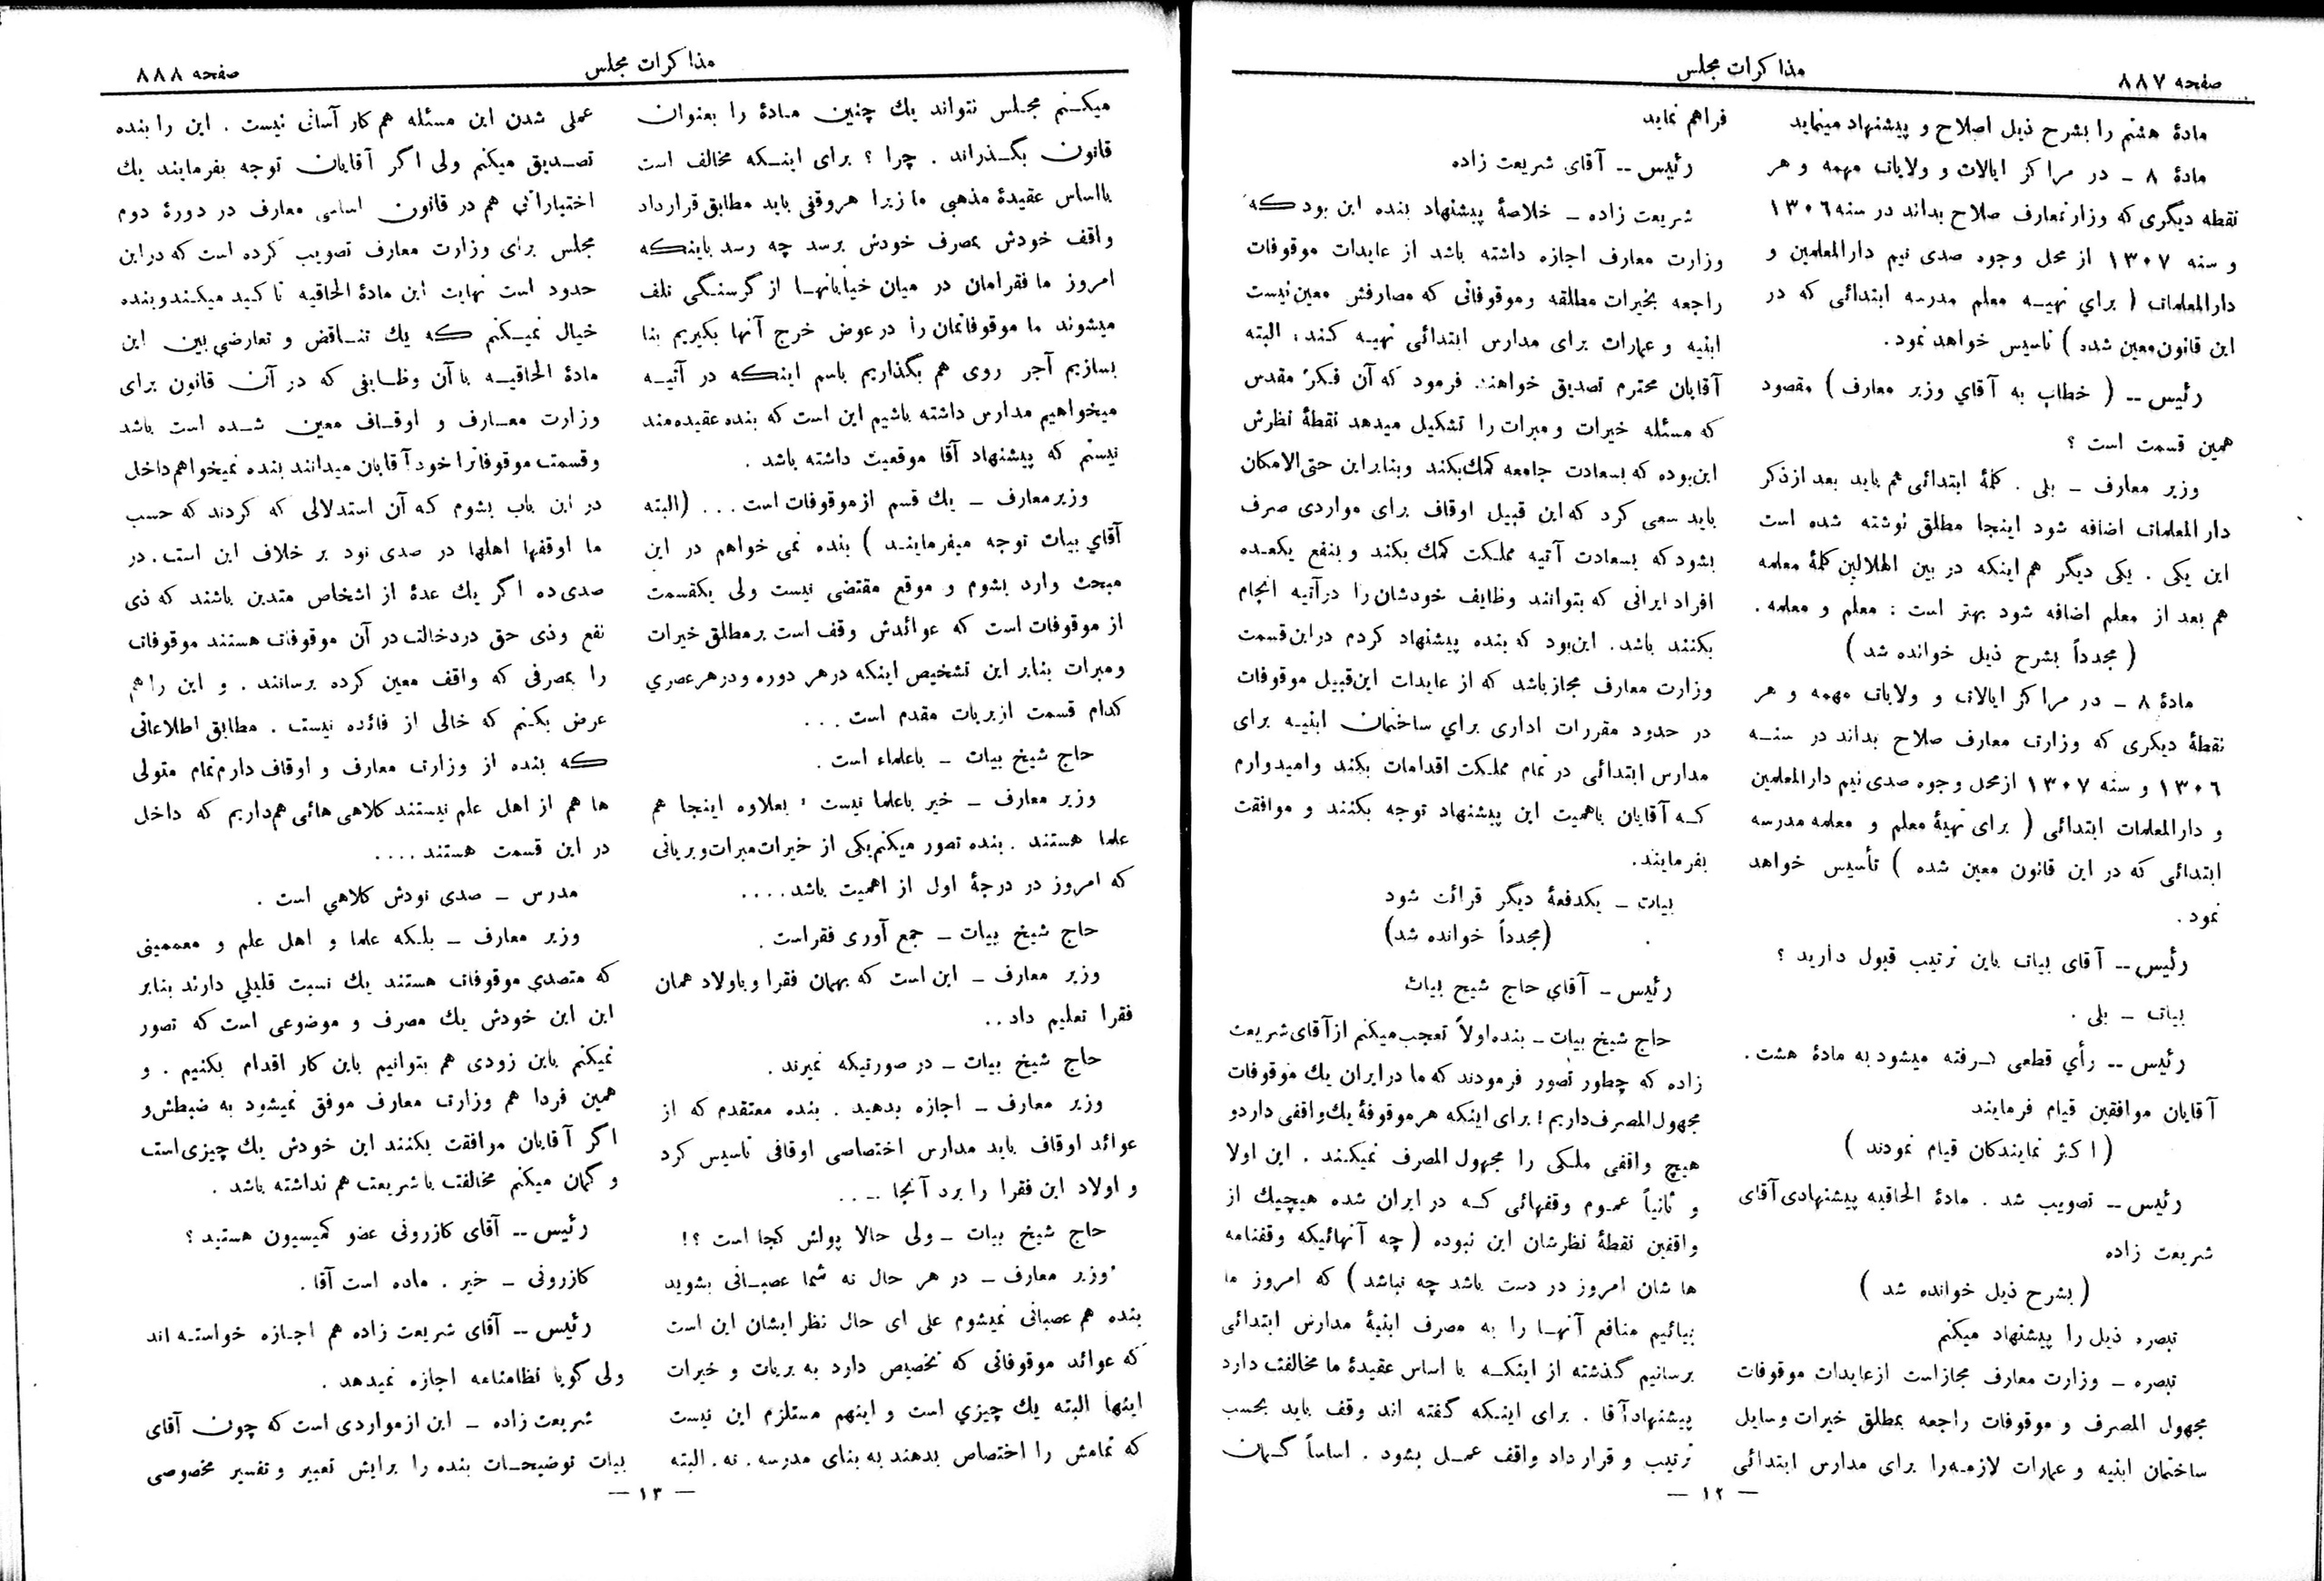 صفحه ۸۸۷
مذاکرات مجلس
مادۀ هشتم را بشرح ذیل اصلاح و پیشنهاد مینماید
مادۀ ۸ – در مراکز ایالات و ولایات مهمه و هر
نقطه دیگری که وزارتمعارف صلاح بداند در سنه ۱۳۰۶
و سنه ۱۳۰۷ از محل وجوه صدی نیم دارالمعلمین و
دارالمعلمات ( براي تهیـه معلم مدرسه ابتدائی که در
این قانون معین شده ) تاسیس خواهد نمود.
رئیس -- ( خطاب به آقاي وزیر معارف ) مقصود
همین قسمت است ؟
وزیر معارف – بلی . کلمۀ ابتدائی هم باید بعد از ذکر
دار المعلمات اضافه شود اینجا مطلق نوشته شده است
این یکی . یکی دیگر هم اینکه در بین الهلالین کلمۀ معلمه
هم بعد از معلم اضافه شود بهتر است : معلم و معلمه .
( مجدداً بشرح ذیل خوانده شد )
مادۀ ۸ – در مراکز ایالات و ولایات مهمه و هر
نقطۀ دیگری که وزارت معارف صلاح بداند در سنـه
۱۳۰۶ و سنه ۱۳۰۷ از محل وجوه صدی نیم دارالمعلمین
و دارالمعلمات ابتدائی ( برای تهیۀ معلم و معلمه مدرسه
ابتدائی که در این قانون معین شده ) تأسیس خواهد
نمود .
رئیس -- آقای بیات باین ترتیب قبول دارید ؟
بیات – بلی .
رئیس -- رأي قطعی گرفته میشود به مادۀ هشت .
آقایان موافقین قیام فرمایند
( اکثر نمایندگان قیام نمودند )
رئیس -- تصویب شد . مادۀ الحاقیه پیشنهادی آقای
شریعت زاده
( بشرح ذیل خوانده شد )
تبصره ذیل را پیشنهاد میکنم
تبصره – وزارت معارف مجاز است از عایدات موقوفات
مجهول المصرف و موقوفات راجعه بمطلق خیرات وسایل
ساختمان ابنیه و عمارات لازمه را برای مدارس ابتدائی
فراهم نماید
رئیس -- آقای شریعت زاده
شریعت زاده – خلاصۀ پیشنهاد بنده این بود که
وزارت معارف اجازه داشته باشد از عایدات موقوفات
راجعه بخیرات مطلقه و موقوفاتی که مصارفش معین نیست
ابنیه و عمارات برای مدارس ابتدائی تهیـه کند ؛ البته
آقایان محترم تصدیق خواهند فرمود که آن فکر مقدس
که مسئله خیرات و مبرات را تشکیل میدهد نقطۀ نظرش
این بوده که بسعادت جامعه کمک بکند و بنابراین حتی الامکان
باید سعی کرد که این قبیل اوقاف برای مواردی صرف
بشود که بسعادت آتیه مملکت کمک بکند و بنفع یکعـده
افراد ایرانی که بتوانند وظایف خودشان را در آتیه انجام
بکنند باشد . این بود که بنده پیشنهاد کردم در این قسمت
وزارت معارف مجاز باشد که از عایدات این قبیل موقوفات
در حدود مقررات اداری براي ساختمان ابنیـه برای
مدارس ابتدائی در تمام مملکت اقدامات بکند و امیدوارم
کـه آقایان باهمیت این پیشنهاد توجه بکنند و موافقت
بفرمایند .
بیات – یکدفعۀ دیگر قرائت شود
(مجدداً خوانده شد)
رئیس – آقاي حاج شیخ بیات
حاج شیخ بیات – بنده اولاً تعجب میکنم از آقای شریعت
زاده که چطور تصور فرمودند که ما در ایران یك موقوفات
مجهول المصرف داریم ! برای اینکه هر موقوفۀ یك واقفی دارد و
هیچ واقفی ملکی را مجهول المصرف نمیکـند . این اولا
و ثانیاً عمـوم وقفهائی کـه در ایران شده هیچیك از
واقفین نقطۀ نظرشان این نبوده ( چه آنهائیکه وقفنامه
ها شان امروز در دست باشد چه نباشد ) که امروز ما
بیائیم منافع آنهـا را به مصرف ابنیۀ مدارس ابتدائی
برسانیم گذشته از اینکـه با اساس عقیدۀ ما مخالفت دارد
پیشنهاد آقا . برای اینـکه گفته اند وقف باید بحسب
ترتیب و قرار داد واقف عمـل بشود . اساساً گمان
– ۱۲ –
مذاکرات مجلس
صفحه ۸۸۸
میکـنم مجلس نتواند یك چنین مـادۀ را بعنوان
قانون بگـذراند . چرا ؟ برای اینـکه مخالف است
بااساس عقیدۀ مذهبی ما زیرا هر وقفی باید مطابق قرارداد
واقف خودش بمصرف خودش برسد چه رسد باینکه
امروز ما فقرامان در میان خیابانهـا از گرسنـگی تلف
میشوند ما موقوفاتمان را در عوض خرج آنها بکنیم بنا
بسازیم آجر روی هم بگذاریم باسم اینـکه در آتیـه
میخواهیم مدارس داشته باشیم این است که بنده عقیده مند
نیستم که پیشنهاد آقا موقعیت داشته باشد .
وزیر معارف – یك قسم از موقوفات است . . . (البته
آقاي بیات توجه میفرماینـد ) بنده نمی خواهم در این
مبحث وارد بشوم و موقع مقتضی نیست ولی یکقسمت
از موقوفات است که عوائدش وقف است بر مطلق خیرات
و مبرات بنابر این تشخیص اینکه در هر دوره و در هر عصری
کدام قسمت از بریات مقدم است . . .
حاج شیخ بیات – باعلماء است .
وزیر معارف – خیر باعلما نیست ؛ بعلاوه اینجا هم
علما هستند . بنده تصور میکنم یکی از خیرات مبرات و بریاتی
که امروز در درجۀ اول از اهمیت باشد . . . .
حاج شیخ بیات – جمع آوری فقراست .
وزیر معارف – این است که بهمان فقرا و باولاد همان
فقرا تعلیم داد . .
حاج شیخ بیات – در صورتیکه نمیرند .
وزیر معارف – اجازه بدهید . بنده معتقدم که از
عوائد اوقاف باید مدارس اختصاصی اوقافی تاسیس کرد
و اولاد این فقرا را برد آنجا . . . .
حاج شیخ بیات – ولی حالا پولش کجا است ؟!
وزیر معارف – در هر حال نه شما عصبـانی بشوید
بنده هم عصبانی نمیشوم علی ای حال نظر ایشان این است
که عوائد موقوفاتی که تخصیص دارد به بریات و خیرات
اینها البته یك چیزي است و اینهم مستلزم این نیست
که تمامش را اختصاص بدهند به بنای مدرسه . نه . البته
عملی شدن این مسئله هم کار آسانی نیست . این را بنده
تصـدیق میکنم ولی اگر آقایان توجه بفرمایند یك
اختیاراتی هم در قانون اساسی معارف در دورۀ دوم
مجلس برای وزارت معارف تصویب کرده است که در این
حدود است نهایت این مادۀ الحاقیه تاکید میکـند و بنده
خیال نمیـکنم که یك تنـاقض و تعارضي بین این
مادۀ الحاقیـه با آن وظـایفی که در آن قانون برای
وزارت معـارف و اوقـاف معین شـده است باشد
و قسمت موقوفاترا خود آقایان میدانند بنده نمیخواهم داخل
در این باب بشوم که آن استدلالی که کردند که حسب
ما اوقفها اهلها در صدی نود بر خلاف این است . در
صدی ده اگر یك عدۀ از اشخاص متدین باشند که ذی
نفع و ذی حق در دخالت در آن موقوفات هستند موقوفات
را بمصرفی که واقف معین کرده برسانند . و این را هم
عرض بکنم که خالی از فائده نیست . مطابق اطلاعاتی
که بنده از وزارت معارف و اوقاف دارم تمام متولی
ها هم از اهل علم نیستند کلاهی هائی هم داریم که داخل
در این قسمت هستند . . . .
مدرس – صدی نودش کلاهي است .
وزیر معارف – بلـکه علما و اهل علم و معممینی
که متصدي موقوفات هستند یك نسبت قلیلي دارند بنابر
این این خودش یك مصرف و موضوعی است که تصور
نمیکنم باین زودی هم بتوانیم باین کار اقدام بکنیم . و
همین فردا هم وزارت معارف موفق نمیشود به ضبطش و
اگر آقایان موافقت بکنند این خودش یك چیزی است
و گمان میکنم مخالفت با شریعت هم نداشته باشد .
رئیس -- آقای کازرونی عضو کمیسیون هستید ؟
کازرونی – خیر . ماده است آقا .
رئیس -- آقای شریعت زاده هم اجـازه خواستـه اند
ولی گویا نظامنامه اجازه نمیدهد .
شریعت زاده – این از مواردی است که چون آقای
بیات توضیحـات بنده را برایش تعبیر و تفسیر مخصوصی
– ۱۳ –